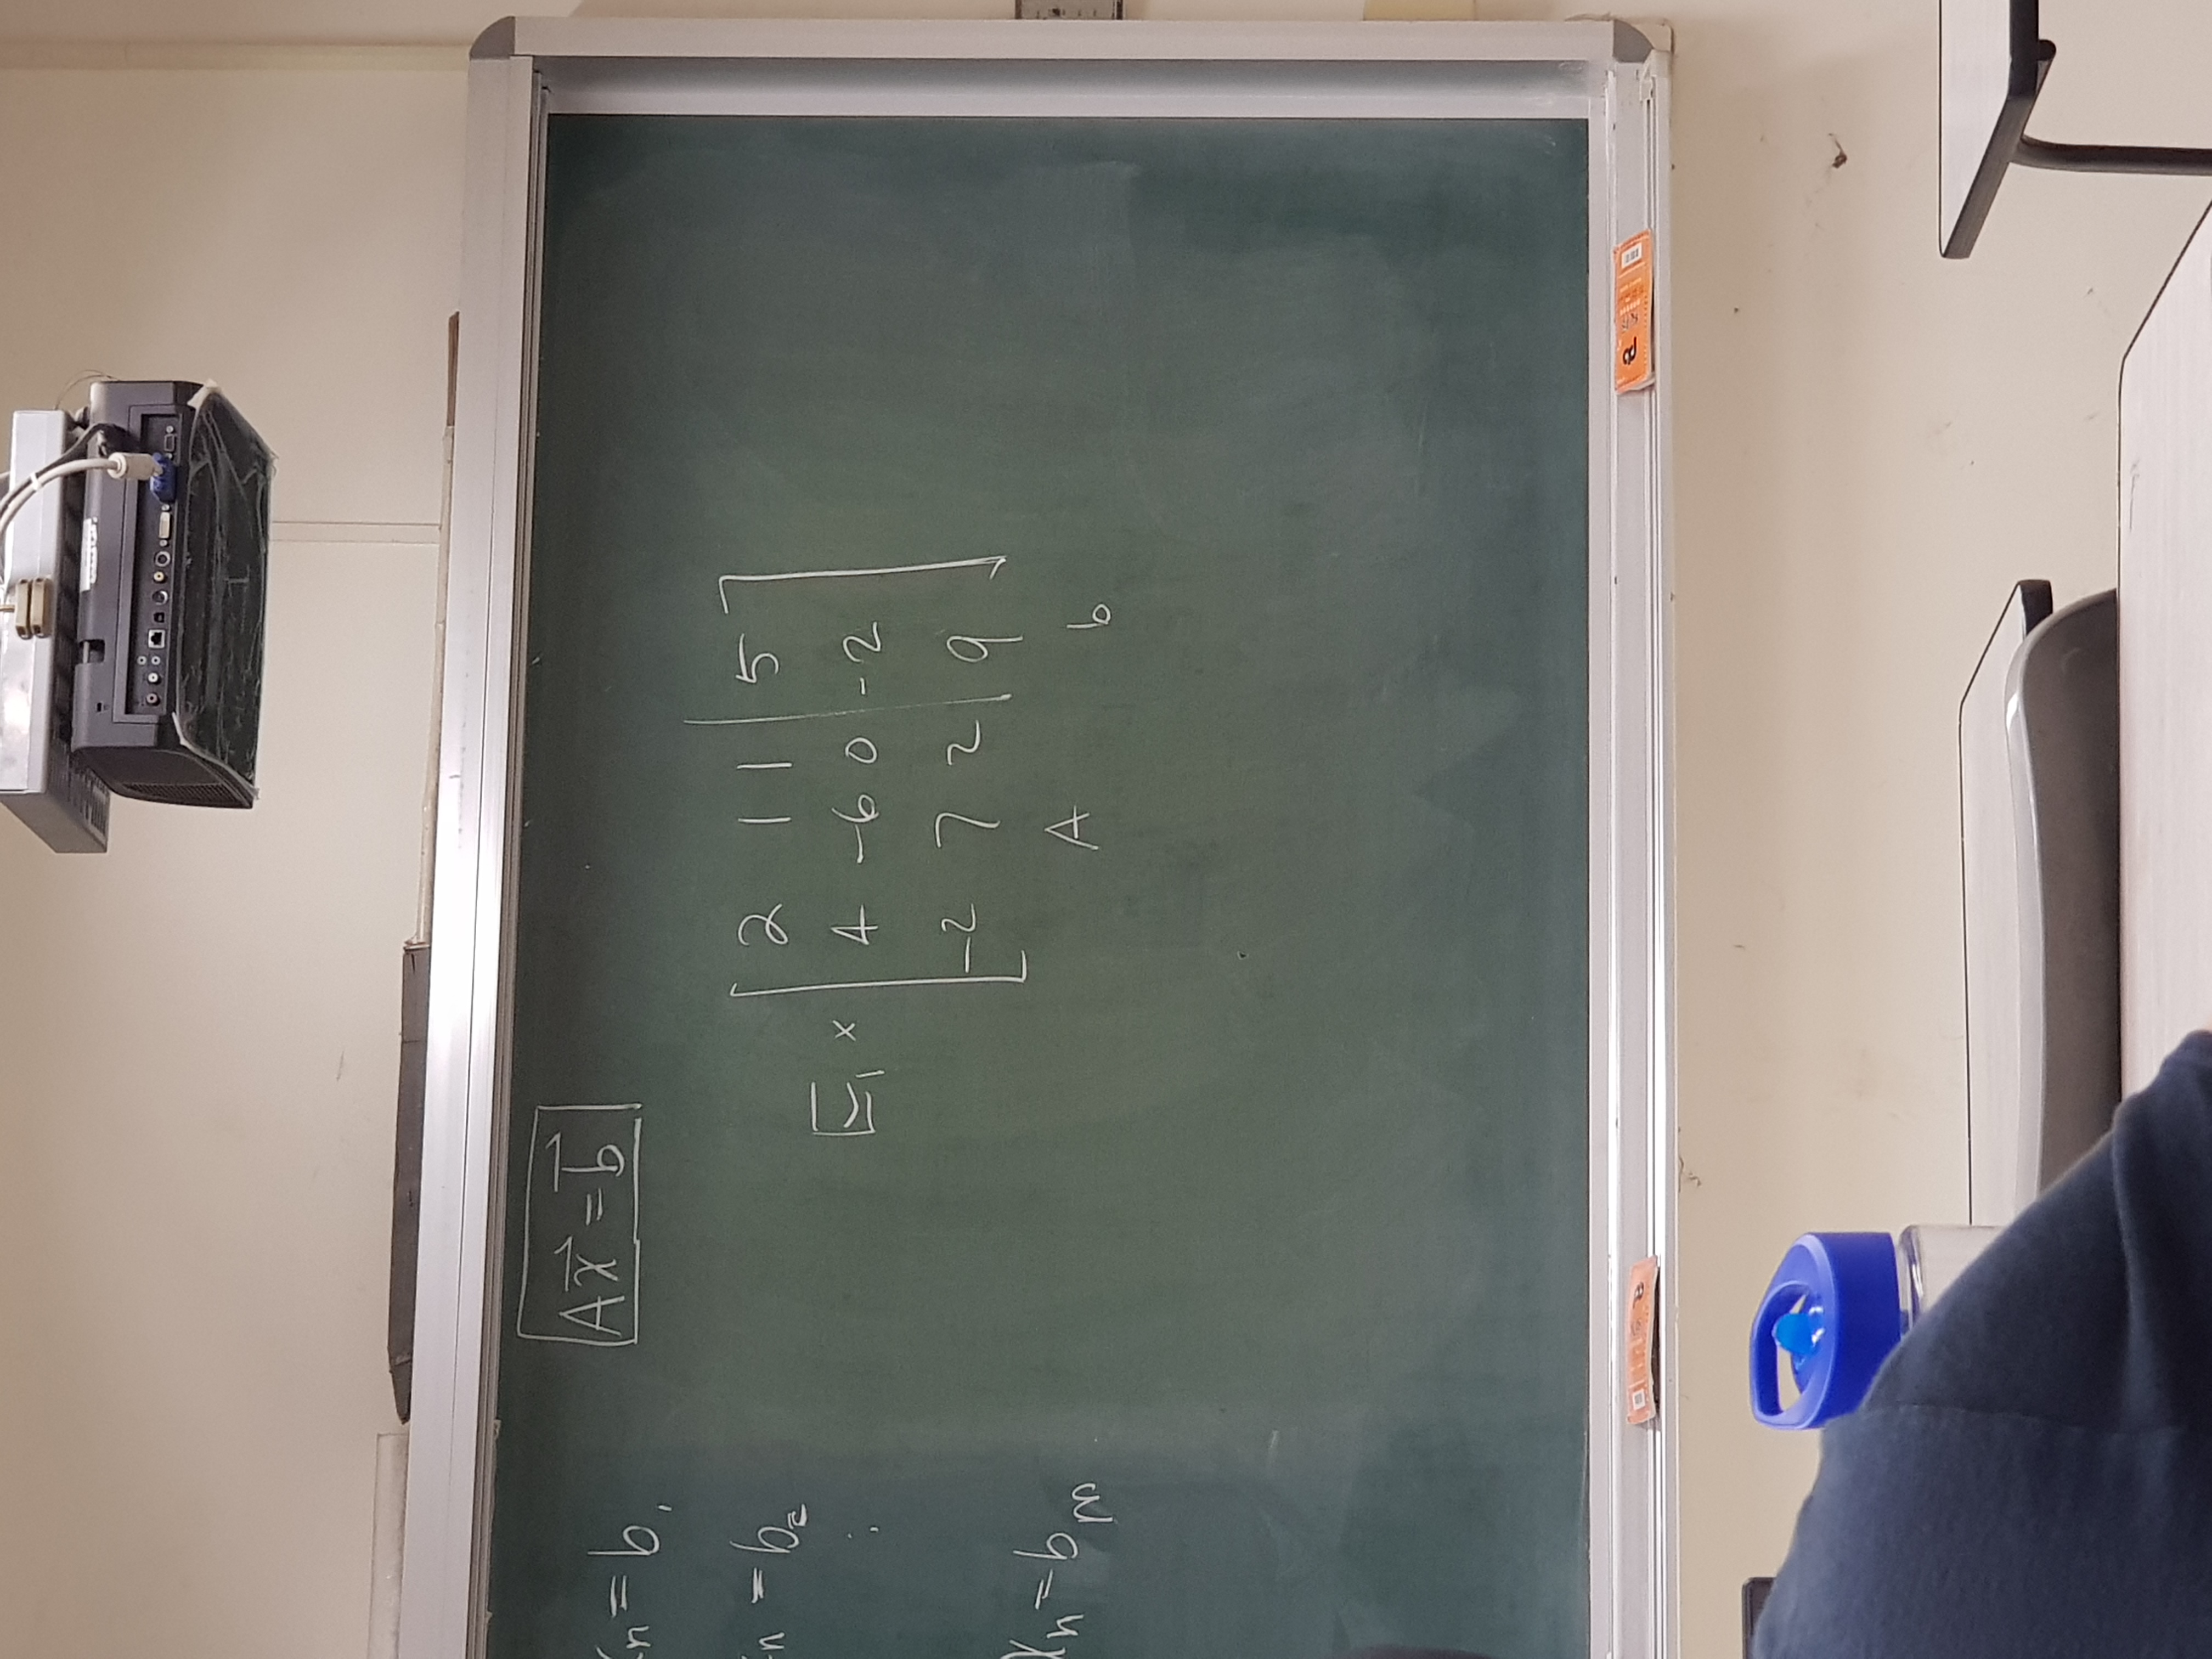 xn = b1
Ax⃗ = b⃗
xn = b2
⋮
xn = bm
E1 × [ 2 1 1 | 5 ]
4 -6 0 | -2
-2 7 2 | 9
A b